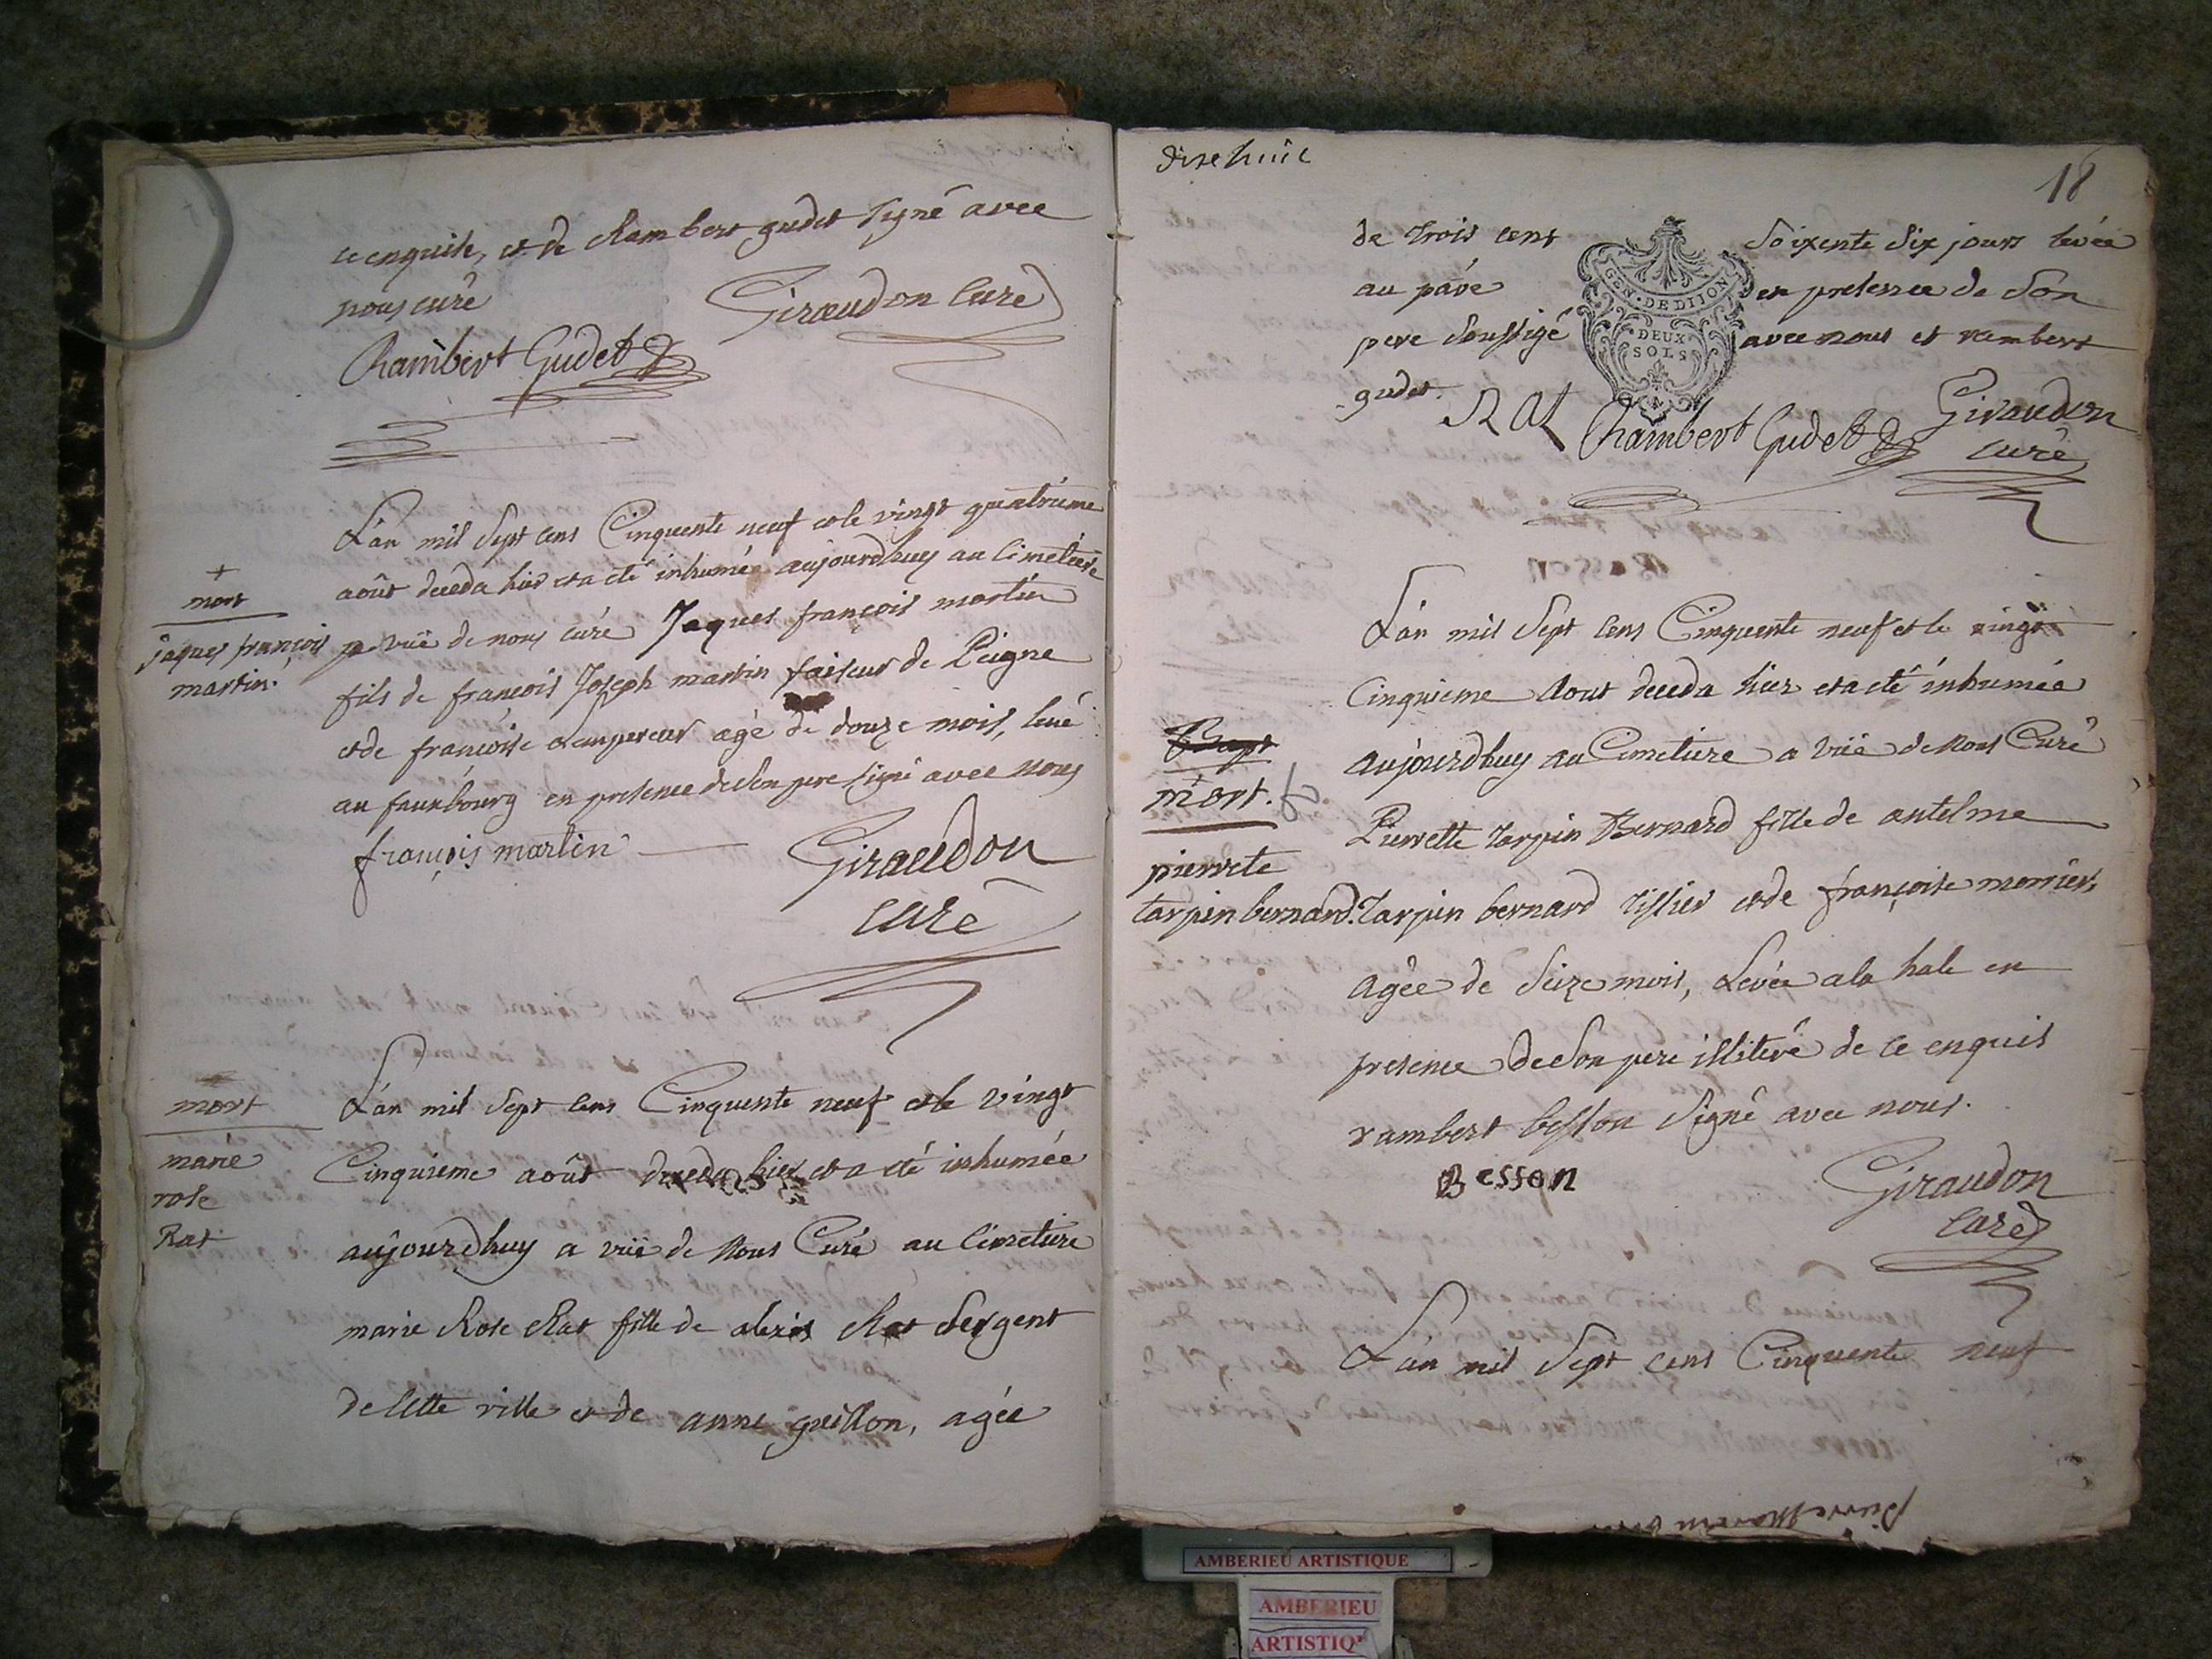 ce enquise, et de Rambert gudet signé avec
nous curé
Rambert Gudet
Giraudon Curé
L'an mil sept cens Cinquente neuf et le vingt quatrieme
août deceda hier et a eté inhumé aujourdhuy au Cimetiere
+
mort
jaques françois
martin.
a vüe de nous curé Jaques françois martin
fils de françois Joseph martin faiseur de Peigne
et de françoise agé de douze mois, levé
au fauxbourg en presence de son pere signé avec nous
françois martin
Giraudon
Curé
mort
marie
rose
Rat
L'an mil sept cens Cinquente neuf et le vingt
Cinquieme août deceda hier et a eté inhumée
aujourdhuy a vüe de Nous Curé au Cimetiere
marie Rose Rat fille de alexis Rat Sergent
de Cette ville et de anne guillon, agée
dixe huit
18
de trois cent soixente six jours levée
au pavé en presence de son
pere soussigé avec nous et rambert
gudet.
GEN. DE DIJON
DEUX
SOLS
Rat Rambert Gudet Giraudon
curé
L'an mil sept cens Cinquente neuf et le vingt
Cinquieme Aout deceda hier et a eté inhumée
aujourdhuy au Cimetiere a vüe de Nous Curé
Bapt
mort.
pierrete
tarpin bernard.
Pierrette tarpin Bernard fille de antelme
Tarpin bernard tissier et de françoise morrier,
Agée de seize mois, Levée a la hale en
presence de son pere illiteré de ce enquis
rambert besson signé avec nous.
Besson
Giraudon
Curé
L'an mil sept cens Cinquente neuf
AMBERIEU ARTISTIQUE
AMBERIEU
ARTISTIQ